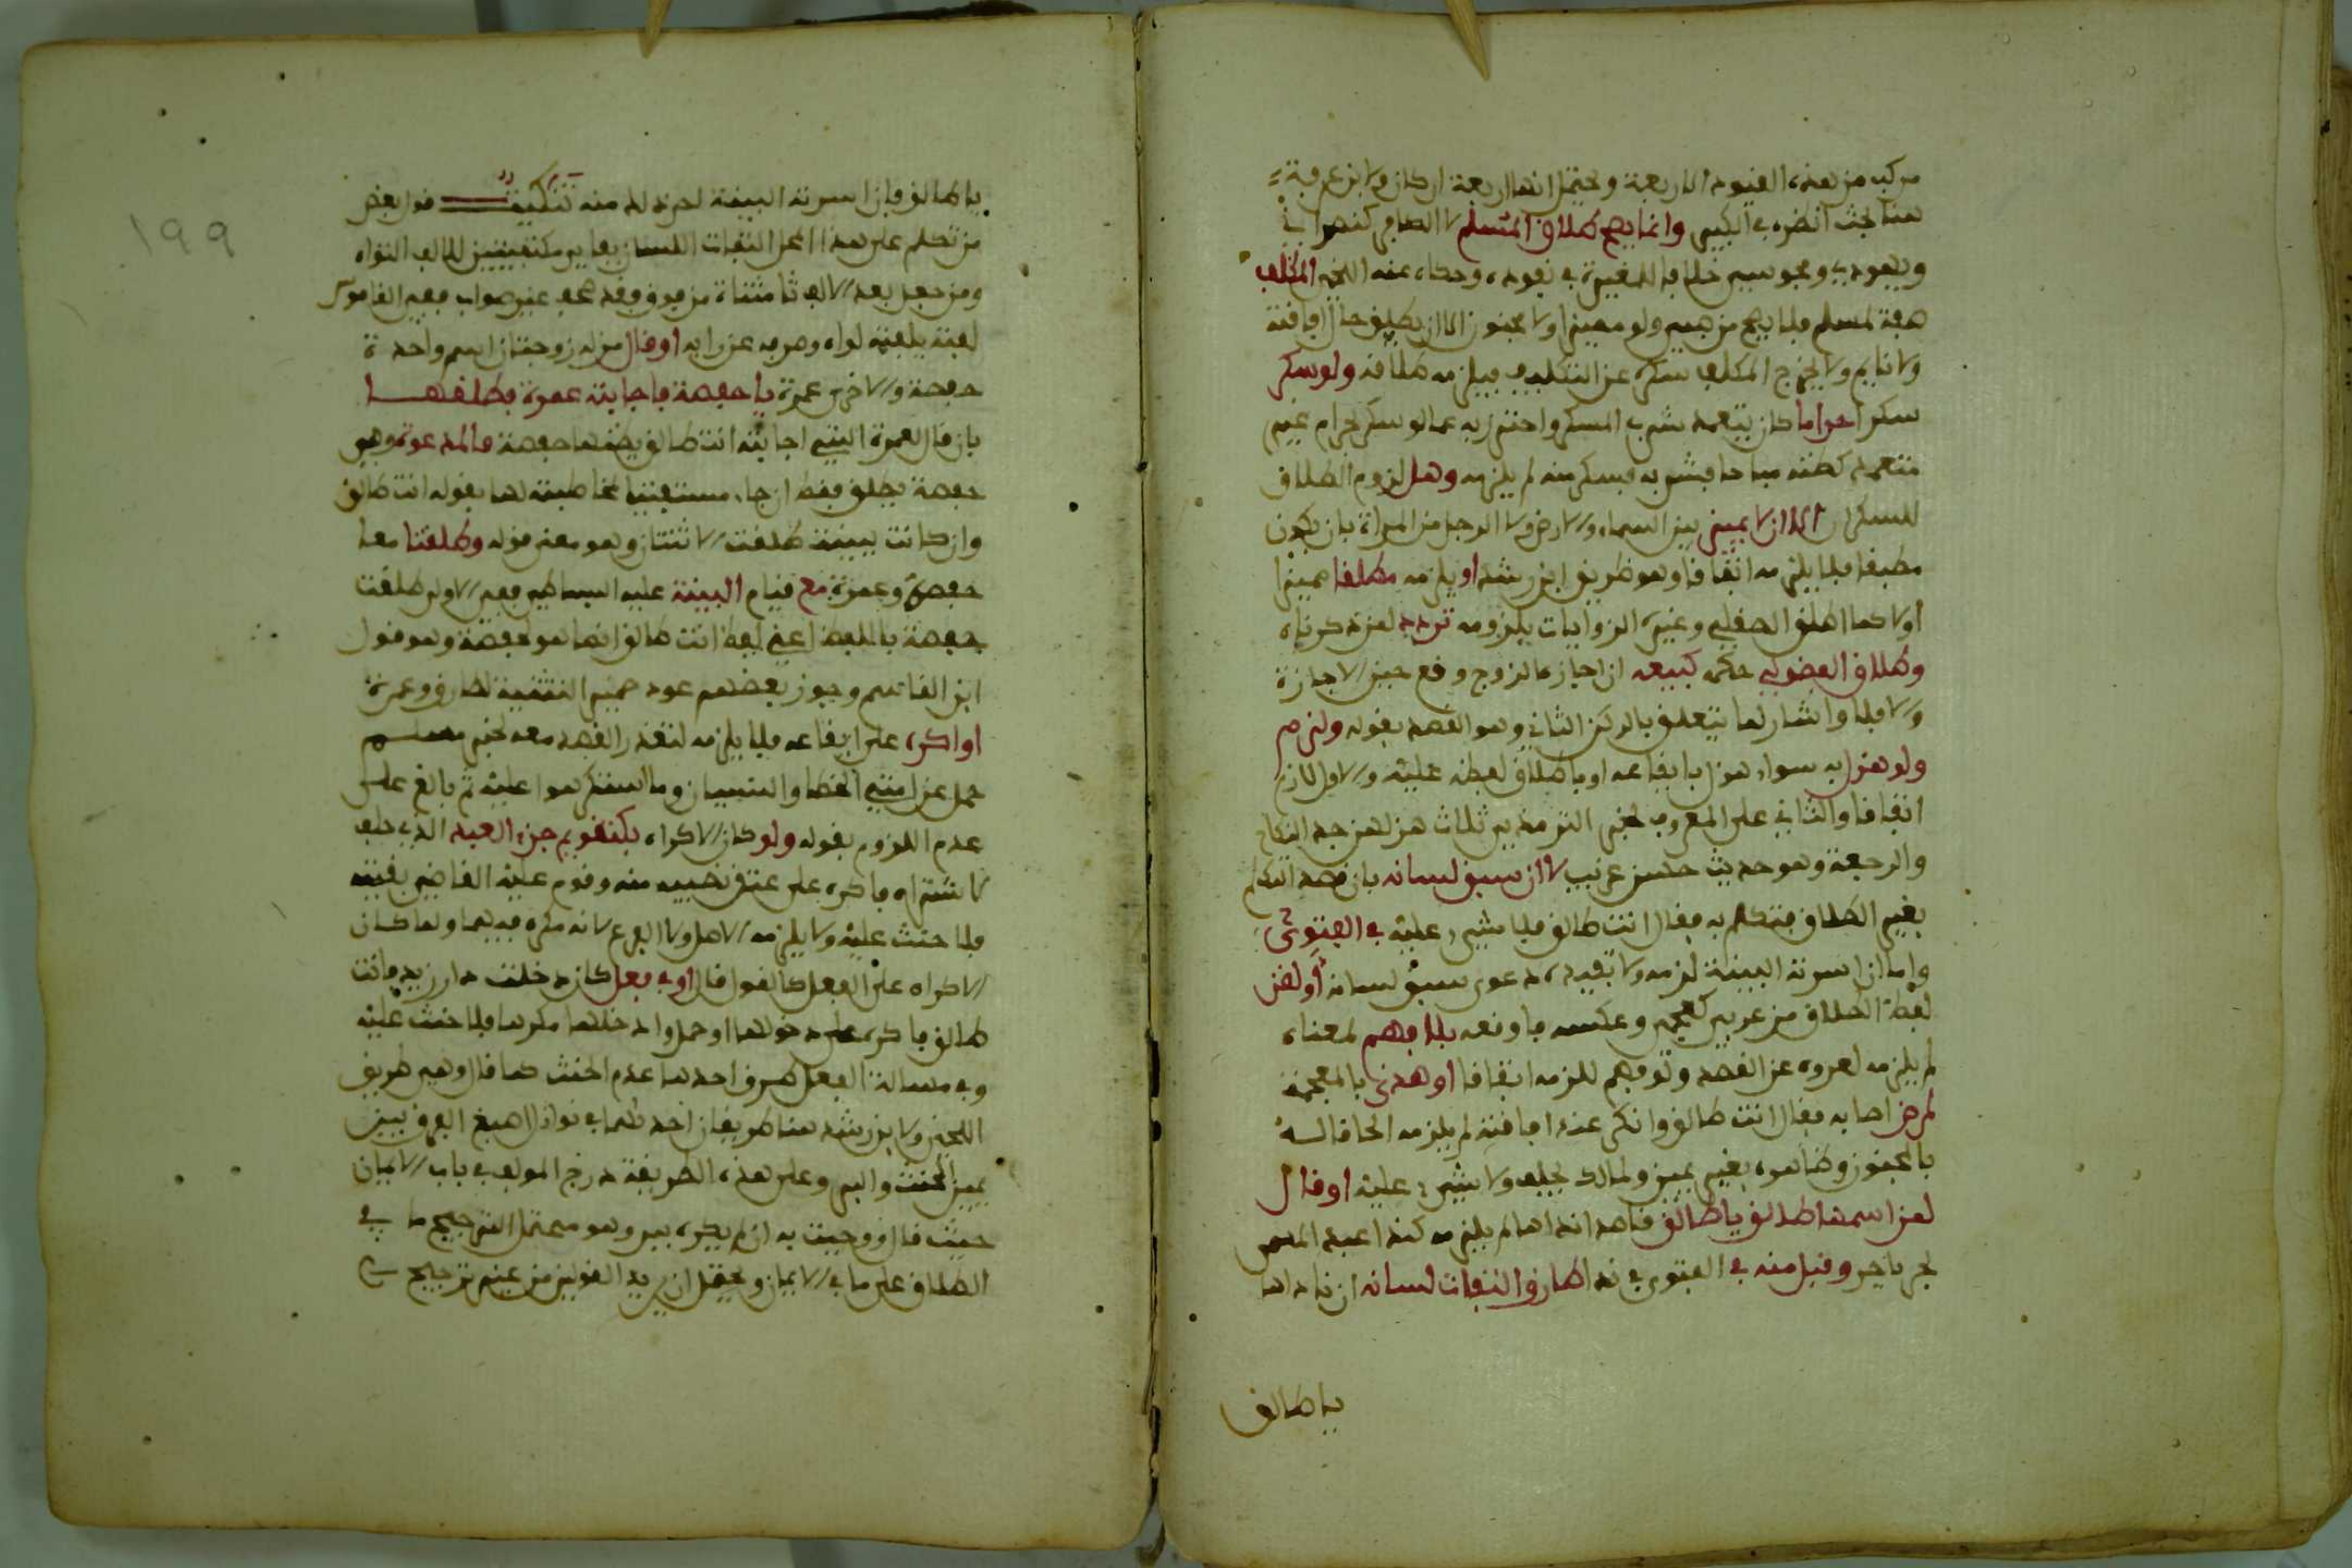 مركب من هذه القيود الاربعة ويحتمل انها اربعة اركان ولابن عرفة
هنا بحث انظره في الكبير وانما يصح طلاق المسلم لا الكافر كنصراني
ويهودي ومجوسي خلافا للمغيرة في نفوذه وحكاه عنه اللخمي المكلف
صفة لمسلم فلا يصح من صبي ولو مميزا ولا مجنون الا ان يطلق حال افاقته
ولا نايم ولا يخرج المكلف بسكره عن التكليف فيلزمه طلاقه ولو سكر
سكرا حراما كان يتعمد شرب المسكر واحترز به عما لو سكر بحرام غير
متعمد كظنه مباحا فشربه فسكر منه لم يلزمه وهل لزوم الطلاق
للسكران الا ان لا يميز بين السماء والارض ولا الرجل من المراة بان يكون
مطبقا فلا يلزمه اتفاقا وهو طريق ابن رشد او يلزمه مطلقا ميز
اولا كما اطلق الصقلي وغيره الروايات بلزومه تردد لمن ذكرناه
وطلاق الفضولي حكمه كبيعه ان اجازه الزوج وقع حين الاجازة
والا فلا واشار لما يتعلق بالركن الثاني وهو القصد بقوله ولزم
ولو هزل به سواء هزل بايقاعه او باطلاق لفظه عليه والاول لازم
اتفاقا والثاني على المعروف لخبر الترمذي ثلاث هزلهن جد النكاح
والرجعة وهو حديث حسن غريب لا ان سبق لسانه بان قصد التكلم
بغير الطلاق فتكلم به فقال انت طالق فلا شيء عليه في الفتوى
واما ان اسرته البينة لزمه ولا تفيده دعوى سبق لسانه او لقن
لفظ الطلاق من عربي كعجمي وعكسه فاوقعه بلا فهم لمعناه
لم يلزمه لعروه عن القصد ولو فهم للزمه اتفاقا او هذى بالمعجمة
لمرض اصابه فقال انت طالق وانكر عند افاقته لم يلزمه الحاقا له
بالمجنون وظاهره بغير يمين ولمالك يحلف ولا شيء عليه او قال
لمن اسمها طالق يا طالق قاصدا نداها لم يلزمه كندا عبده المسمى
بحر يا حر وقبل منه في الفتوى في ندا طارق التفات لسانه ان ناداها
يا طالق
يا طالق فان اسرته البينة لم يقبل منه تنكيت قول بعض
من تكلم على هذا المحل التفات اللسان بفا بين مكتنفتين للالف التواه
ومن جعل بعد الالف تا مثناة من فوق فقد صحف غير صواب ففي القاموس
لفته يلفته لواه وصرفه عن رايه او قال من له زوجتان اسم واحدة
حفصة والاخرى عمرة يا حفصة فاجابته عمرة فطلقها
بان قال لعمرة التي اجابته انت طالق يظنها حفصة فالمدعوة وهي
حفصة تطلق فقط ان جاء مستفتيا مخاطبته لها بقوله انت طالق
وان كانت ببينة طلقت الاثنتان وهو معنى قوله وطلقتا معا
حفصة وعمرة مع قيام البينة عليه البساطي ففي الاولى طلقت
حفصة باللفظ اعني لفظ انت طالق انما هو لحفصة وهو قول
ابن القاسم وجوز بعضهم عود ضمير التثنية لطارق وعمرة
او اكره على ايقاعه فلا يلزمه لتعذر القصد معه لخبر مسلم
حمل عن امتي الخطا والنسيان وما استكرهوا عليه ثم بالغ على
عدم اللزوم بقوله ولو كان الاكراه بكتقويم جزء العبد الذي حلف
لا اشتراه فاكره على عتق نصيبه منه وقوم عليه القاضي بقيته
فلا حنث عليه ولا يلزمه الاصل ولا الفرع لانه مكره فيهما ولما كان
الاكراه على الفعل كالقول قال او في فعل كان دخلت دار زيد فانت
طالق فاكره على دخولها او حمل وادخلها مكرها فلا حنث عليه
وفي مسالة الفعل طرق احدها عدم الحنث كما قال وهي طريق
اللخمي ولابن رشد هنا طريقان احداهما في نوازل اصبغ الفرق بين
يمين الحنث والبر وعلى هذه الطريقة درج المولف في باب الايمان
حيث قال ووجبت به ان لم يكره ببر وهو محتمل لترجيح ما في
الطلاق على ما في الايمان ويحتمل ان يريد القولين من غير ترجيح
١٩٩